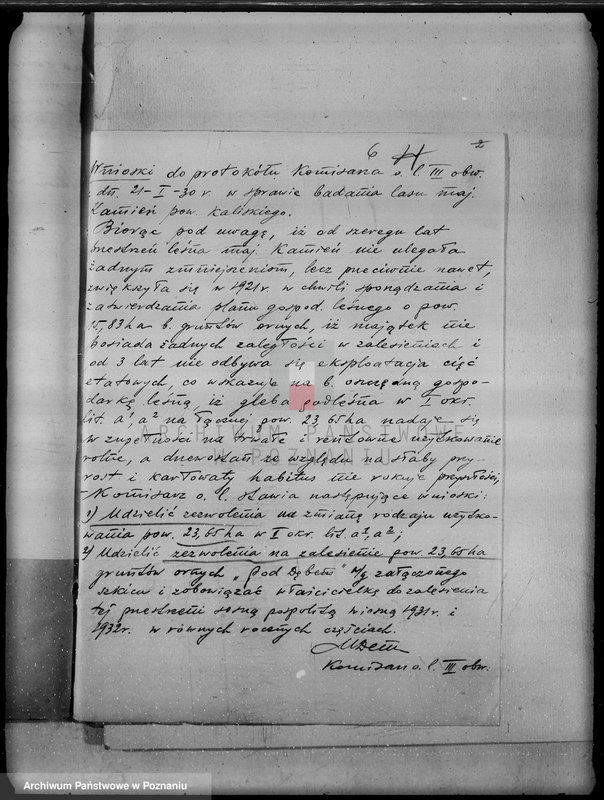 6 H 2
Wnioski do protokółu Komisarza o. l. III obw.
z dn. 21-I-30 r. w sprawie badania lasu maj.
Kamień pow. kaliskiego.
Biorąc pod uwagę, iż od szeregu lat
przestrzeń leśna maj. Kamień nie ulegała
żadnym zmniejszeniom, lecz przeciwnie nawet,
zwiększyła się w 1921 r. w chwili sporządzania i
zatwierdzania planu gospod. leśnego o pow.
15,83 ha b. gruntów ornych, iż majątek nie
posiada żadnych zaległości w zalesieniach i
od 3 lat nie odbywa się eksploatacja cięć
etatowych, co wskazuje na b. oszczędną gospo-
darkę leśną, iż gleba podleśna w I okr.
lit. a¹, a² na łącznej pow. 23,65 ha nadaje się
w zupełności na trwałe i rentowne użytkowanie
rolne, a drzewostan ze względu na słaby przy-
rost i karłowaty habitus nie rokuje przyszłości,
- Komisarz o. l. stawia następujące wnioski:
1) Udzielić zezwolenia na zmianę rodzaju użytko-
wania pow. 23,65 ha w I okr. lit. a¹, a²;
2) Udzielić zezwolenia na zalesienie pow. 23,65 ha
gruntów ornych „Pod Dębem" w/g załączonego
szkicu i zobowiązać właścicielkę do zalesienia
tej przestrzeni sosną pospolitą wiosną 1931 r. i
1932 r. w równych rocznych częściach.
Komisarz o. l. III obw.
ARCHIWUM PAŃSTWOWE
W POZNANIU
Archiwum Państwowe w Poznaniu